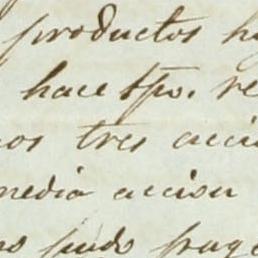 productos h
hace tpo. re
os tres acci
media accion
no pudo frag